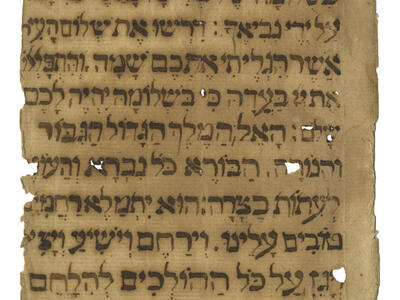 על ידי נביאך : דרשו את שלום
אשר הגליתי אתכם שמה
את יי בעדה כי בשלומה יהיה לכם
שלום : האל המלך הגדול הגבור
הבורא כל נברא
לעתות בצרה : הוא יתמלא
טובים עלינו . וירחם ויושיע
ויגן על כל ההולכים להלחם